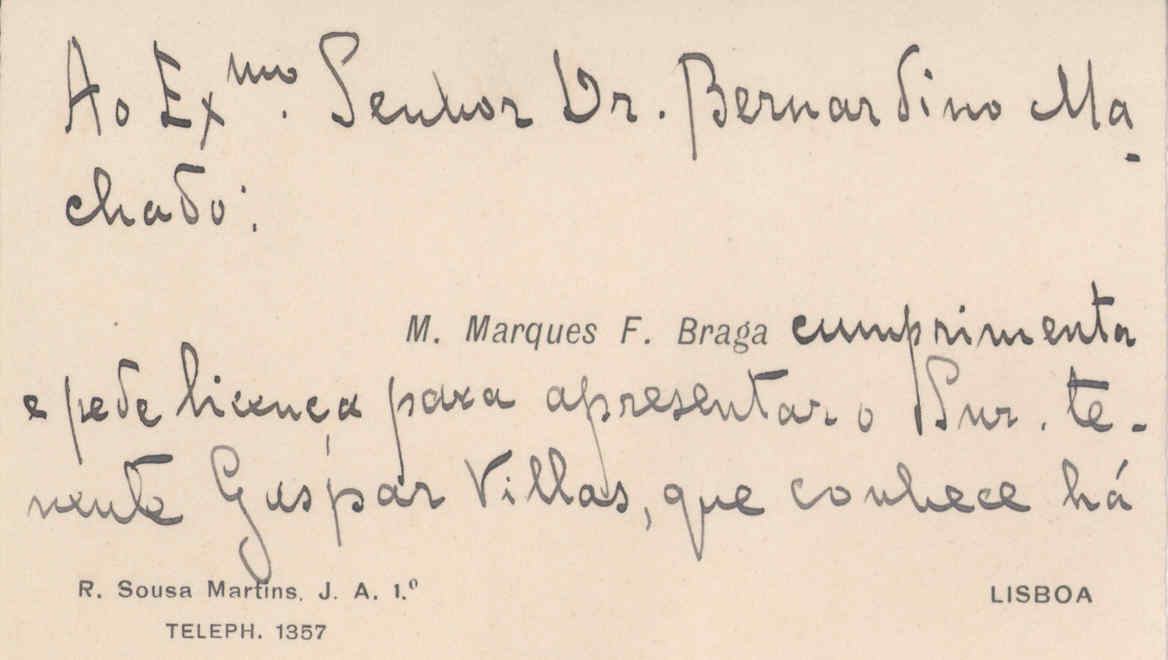 Ao Exmo. Senhor Dr. Bernardino Ma-
chado:
M. Marques F. Braga cumprimenta
e pede licença para apresentar o Snr. te-
nente Gaspar Villas, que conhece há
R. Sousa Martins, J. A. 1.º
LISBOA
TELEPH. 1357